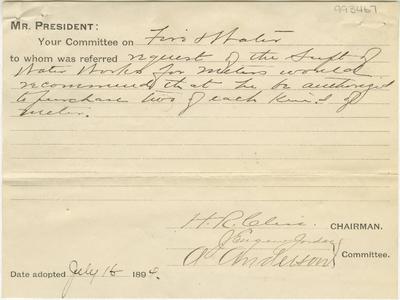 993467
MR. PRESIDENT:
Your Committee on Fire & Water
to whom was referred request of the Supt of
Water Works for meters would
recommend that he be authorized
to purchase two of each kind of
meter.
H. R. Cline CHAIRMAN.
J Eugene Jordan
A Anderson Committee.
Date adopted July 16 1894.